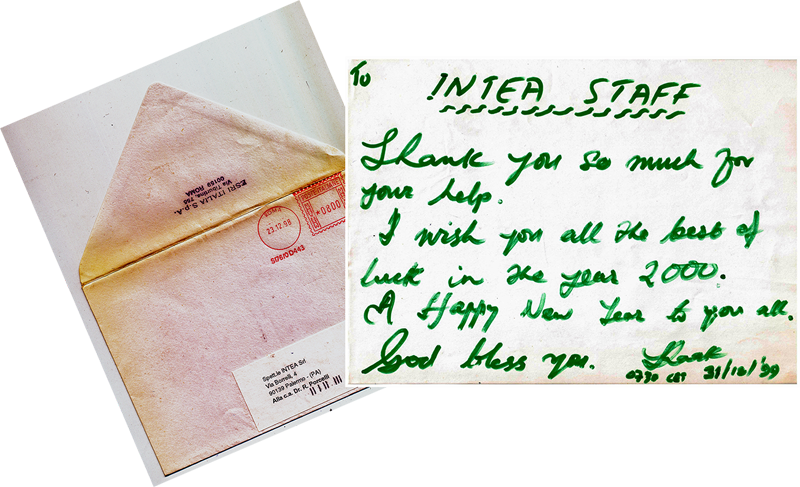 ESRI ITALIA S.p.A.
Via Tiburtina, 755
00159 ROMA
ROMA
23.12.98
*0800
Spett.le INTEA Srl
Via Borrelli, 4
90139 Palermo - (PA)
Alla c.a. Dr. R. Porcelli
To
INTEA STAFF
Thank you so much for
your help.
I wish you all the best of
luck in the year 2000.
A Happy New Year to you all.
God bless you.
0730 CET 31/12/'99